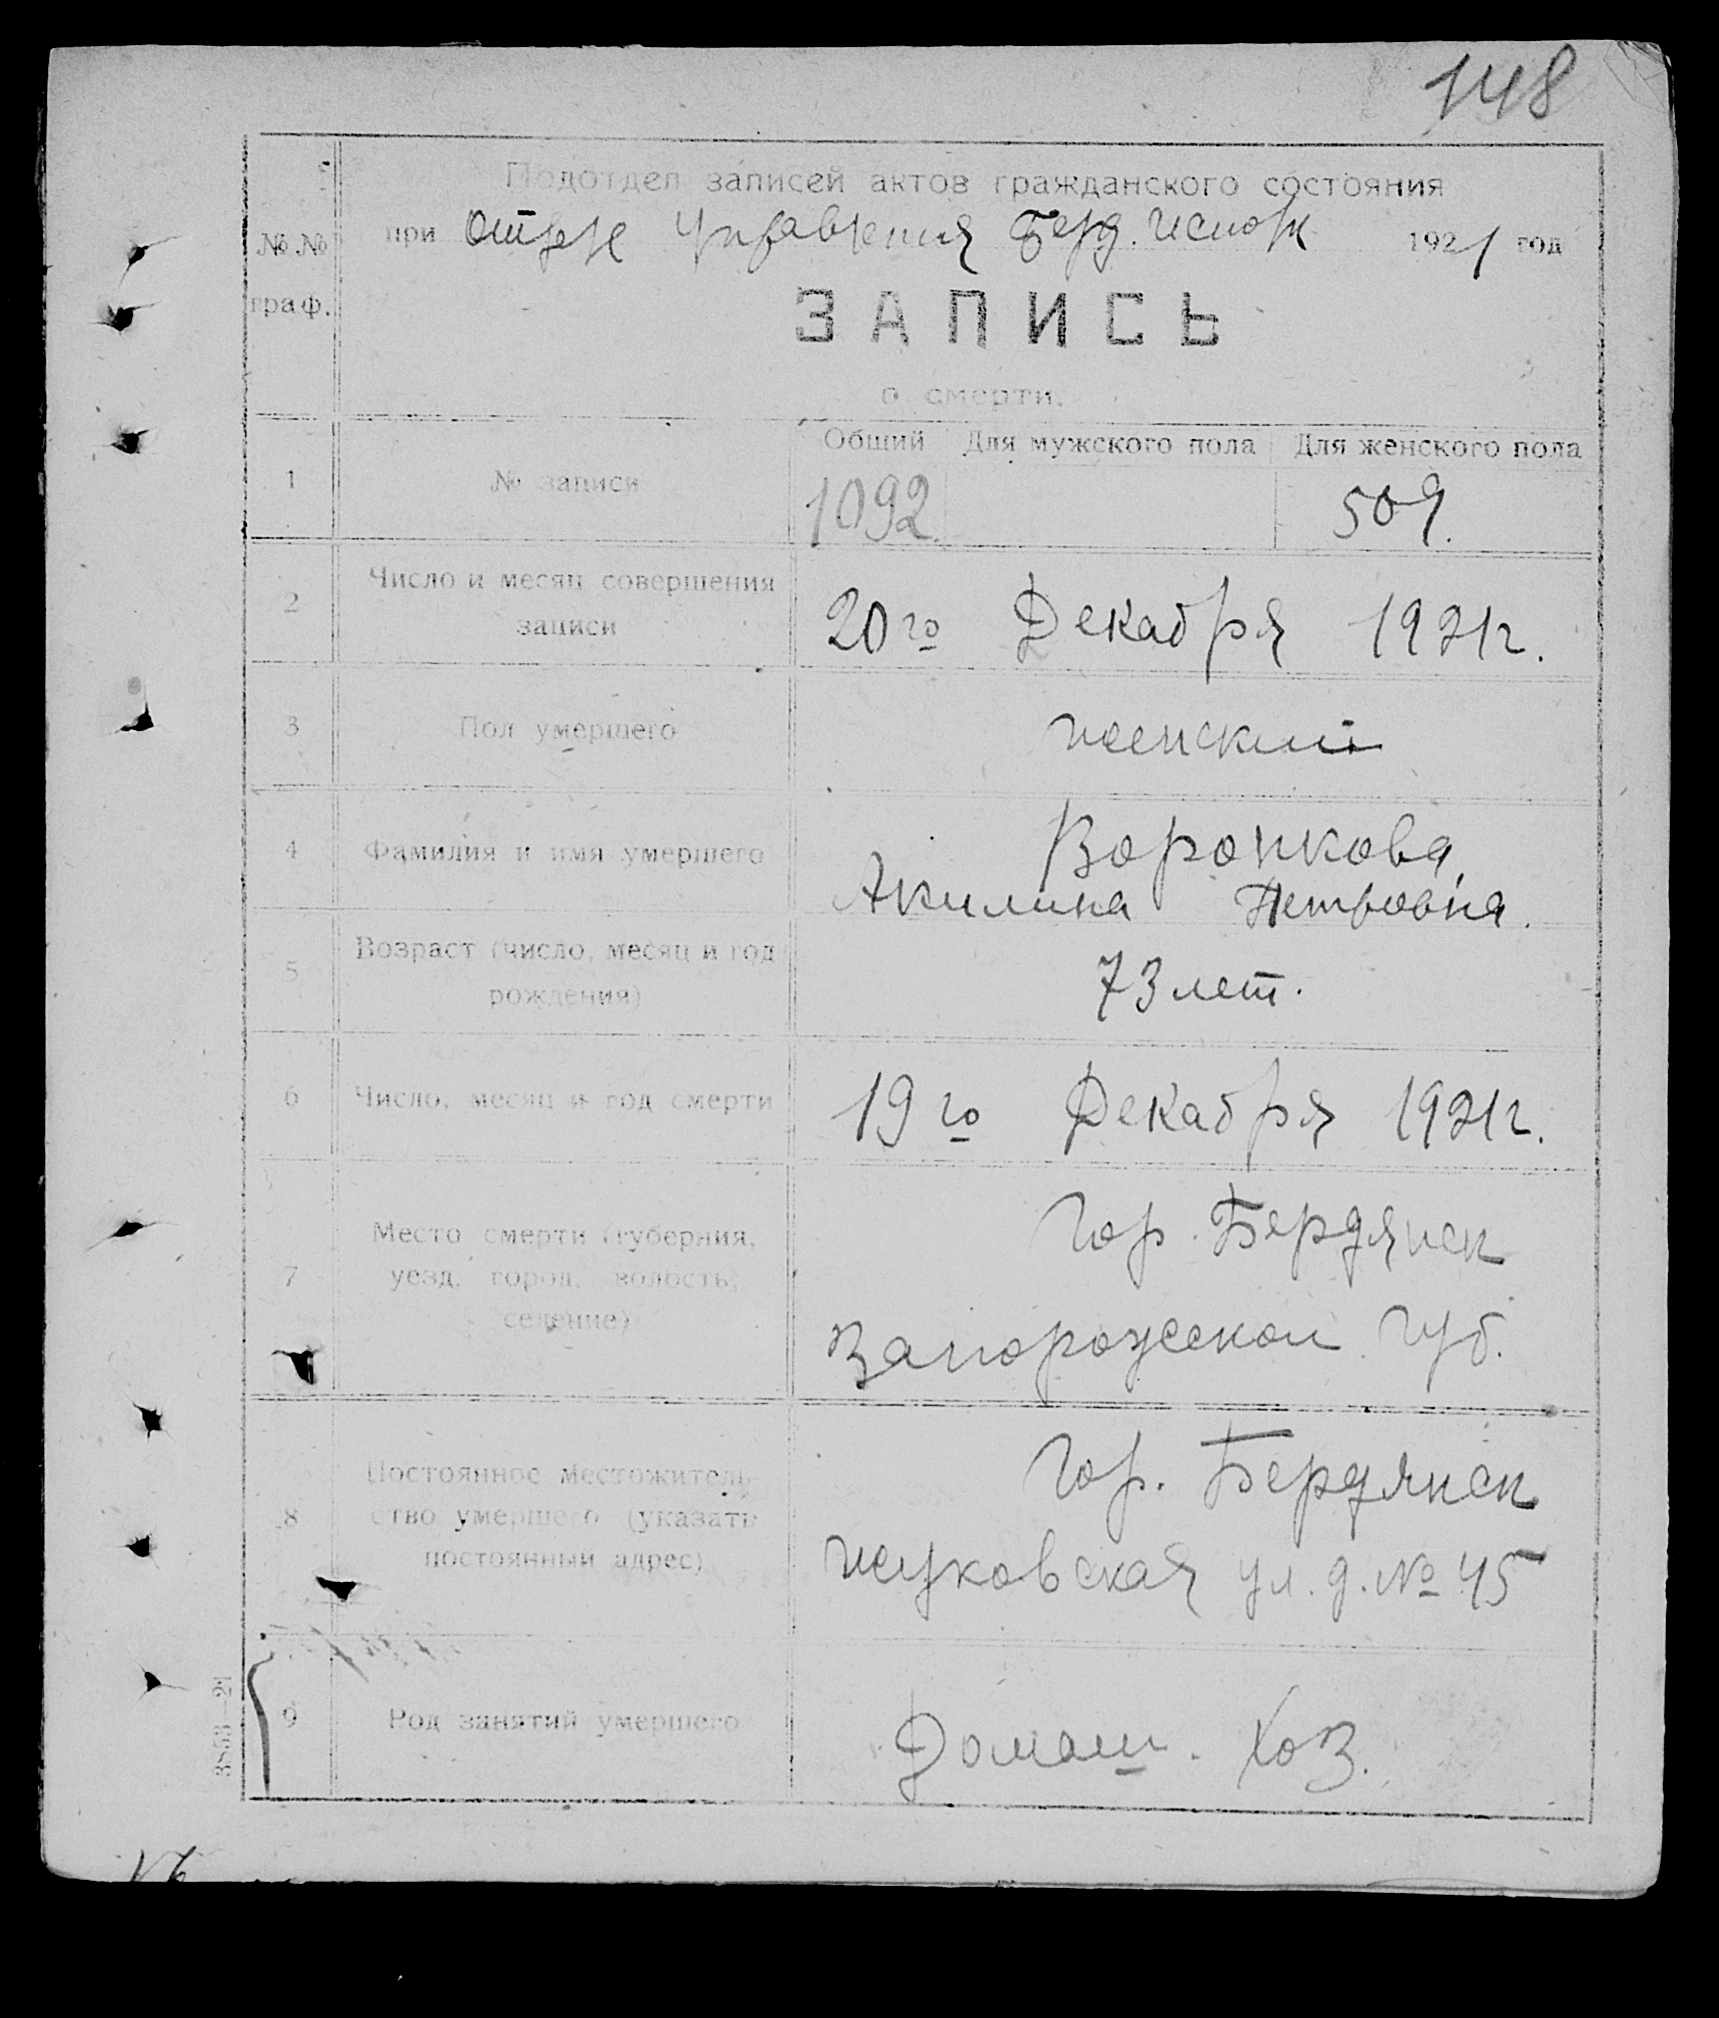 148
Подотдел записей актов гражданского состояния
при Отделе Управления Берд. Исполк 1921 год
№№ граф.
ЗАПИСЬ
о смерти.
Общий Для мужского пола Для женского пола
1 № записи 1092. 509.
2 Число и месяц совершения записи 20го Декабря 1921г.
3 Пол умершего женский
4 Фамилия и имя умершего Воронкова
Акилина Петровна.
5 Возраст (число, месяц и год рождения) 73 лет.
6 Число, месяц и год смерти 19го Декабря 1921г.
7 Место смерти (губерния, уезд, город, волость, селение) Гор. Бердянск
Запорожской Губ.
8 Постоянное местожительство умершего (указать постоянный адрес) Гор. Бердянск
Жуковская ул. д. № 45
9 Род занятий умершего Домаш. Хоз.